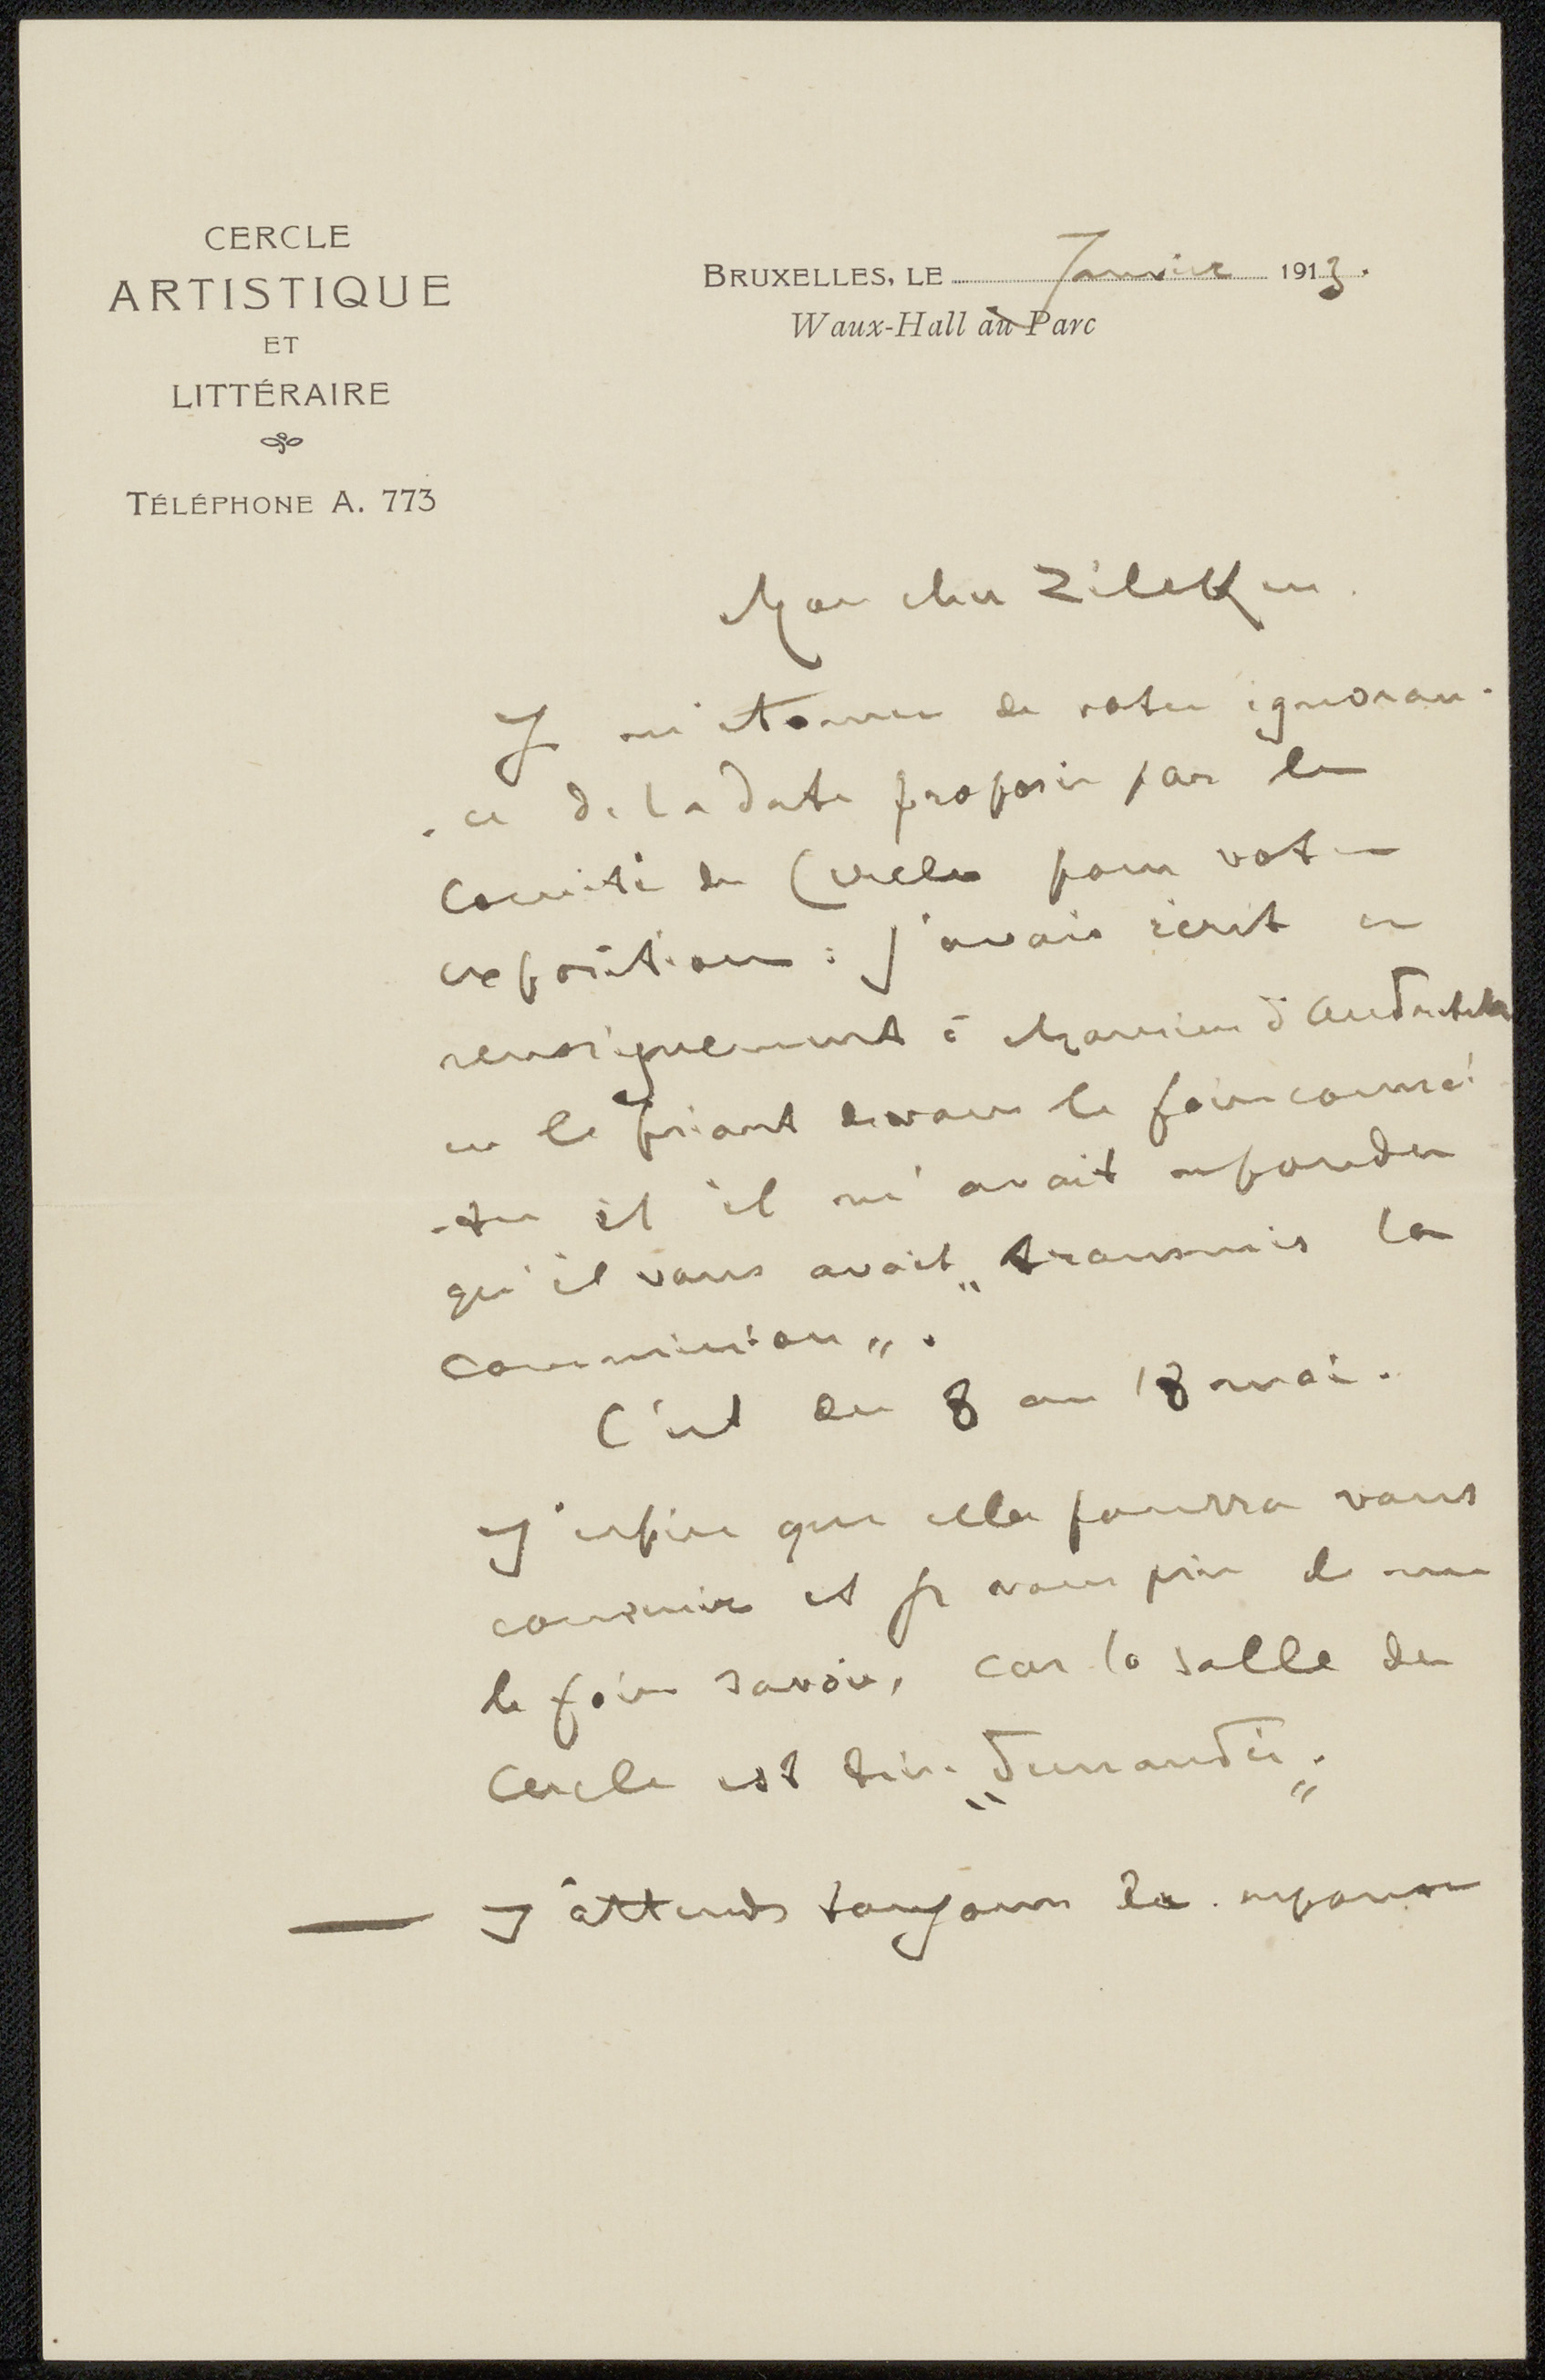 CERCLE
ARTISTIQUE
ET
LITTÉRAIRE
TÉLÉPHONE A. 773
BRUXELLES, LE Janvier 1913.
Waux-Hall au Parc
Mon cher Zilcken
Je m'étonne de votre ignoran-
-ce de la date proposée par le
Comité du Cercle pour votre
exposition : j'avais écrit ce
renseignement à Monsieur d'
en le priant de vous le faire connaî
-tre et il m'avait répondu
qu'il vous avait „transmis la
commission„.
C'est du 8 au 18 mai.
J'espère que cela pourra vous
convenir et je vous prie de me
le faire savoir, car la salle du
Cercle est très „demandée„.
— J'attends toujours la réponse